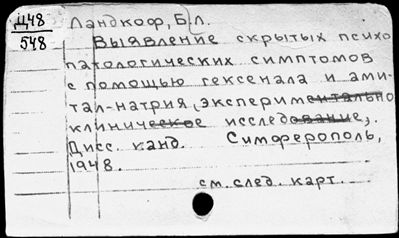 Д48
548
Ландкоф, Б.Л.
Выявление скрытых психо
патологических симптомов
с помощью гексенала и ами-
тал-натрия (экспериментально
клиническое исследование).
Дисс. канд. Симферополь,
1948.
см. след. карт.